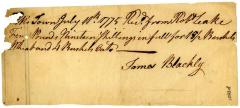 Town July 11th 1775 Recd. from Robt Leake
Ten Pounds Nineteen Shillings in full for Bushels
Wheat and 8 Bushels Oats
James Blackly